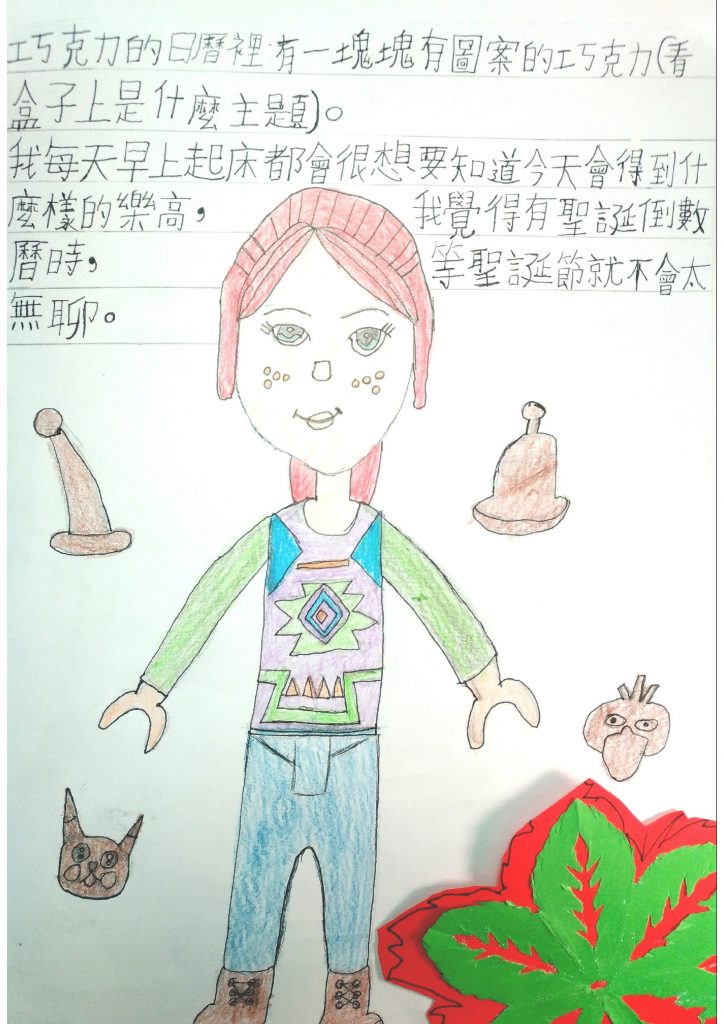 巧克力的日曆裡有一塊塊有圖案的巧克力(看
盒子上是什麼主題)。
我每天早上起床都會很想要知道今天會得到什
麼樣的樂高，我覺得有聖誕倒數
曆時，等聖誕節就不會太
無聊。